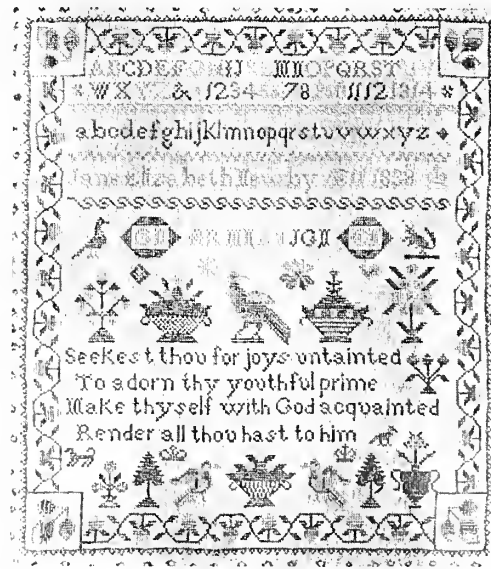 ABCDEFGHIJ MNOPQRST
WXYZ & 1234 78 11 12 13 14
abcdefghijklmnopqrstuvwxyz
Jane Elizabeth Newby 1838
JGH
Seekest thou for joys untainted
To adorn thy youthful prime
Make thyself with God acquainted
Render all thou hast to him